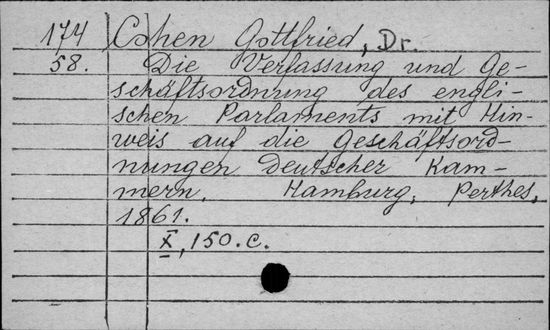 174 Cohen Gottfried, Dr.
58. Die Verfassung und Ge-
schäftsordnung des engli-
schen Parlaments mit Hin-
weis auf die Geschäftsord-
nungen Deutscher Kam-
mern. Hamburg, Perthes,
1861.
X, 150. c.